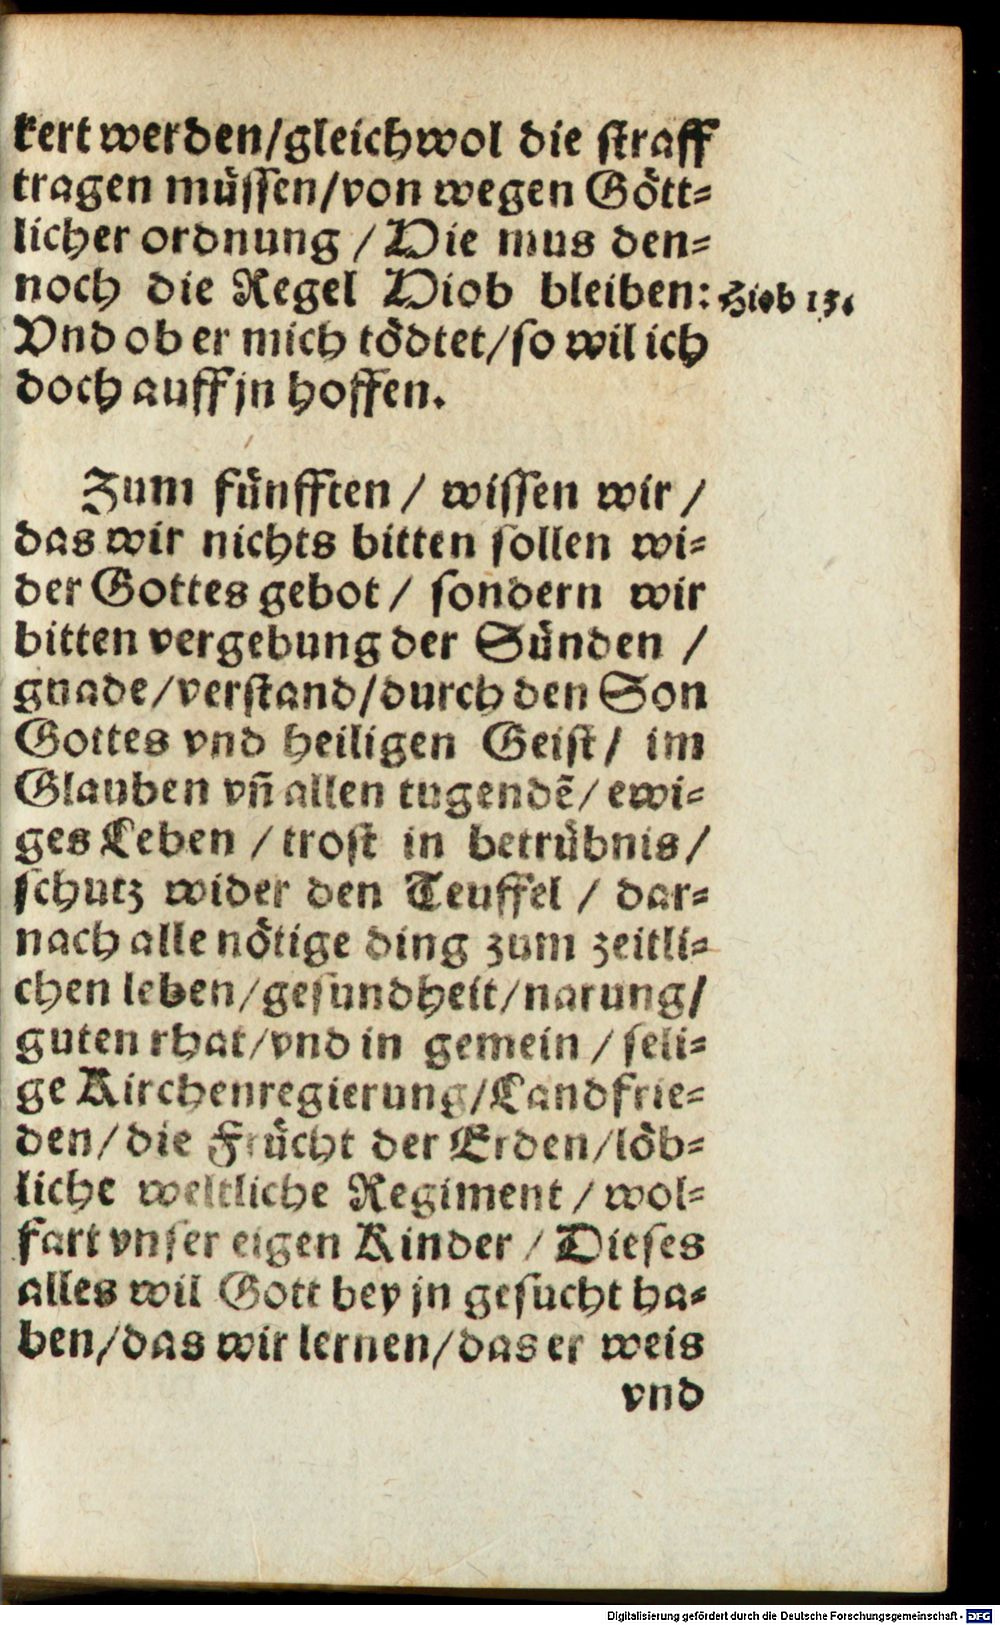 kert werden/gleichwol die straff
tragen müssen/von wegen Gött-
licher ordnung / Die mus den-
noch die Regel Hiob bleiben:
Hiob 13.
Vnd ob er mich tödtet/so wil ich
doch auff jn hoffen.
Zum fünfften / wissen wir /
das wir nichts bitten sollen wi-
der Gottes gebot / sondern wir
bitten vergebung der Sünden /
gnade/verstand/durch den Son
Gottes vnd heiligen Geist / im
Glauben vñ allen tugendẽ/ ewi-
ges Leben / trost in betrübnis/
schutz wider den Teuffel / dar-
nach alle nötige ding zum zeitli-
chen leben/gesundheit/narung/
guten rhat/vnd in gemein / seli-
ge Kirchenregierung/Landfrie-
den/die Frücht der Erden/löb-
liche weltliche Regiment / wol-
fart vnser eigen Kinder / Dieses
alles wil Gott bey jn gesucht ha-
ben/das wir lernen/das er weis
vnd
Digitalisierung gefördert durch die Deutsche Forschungsgemeinschaft - DFG